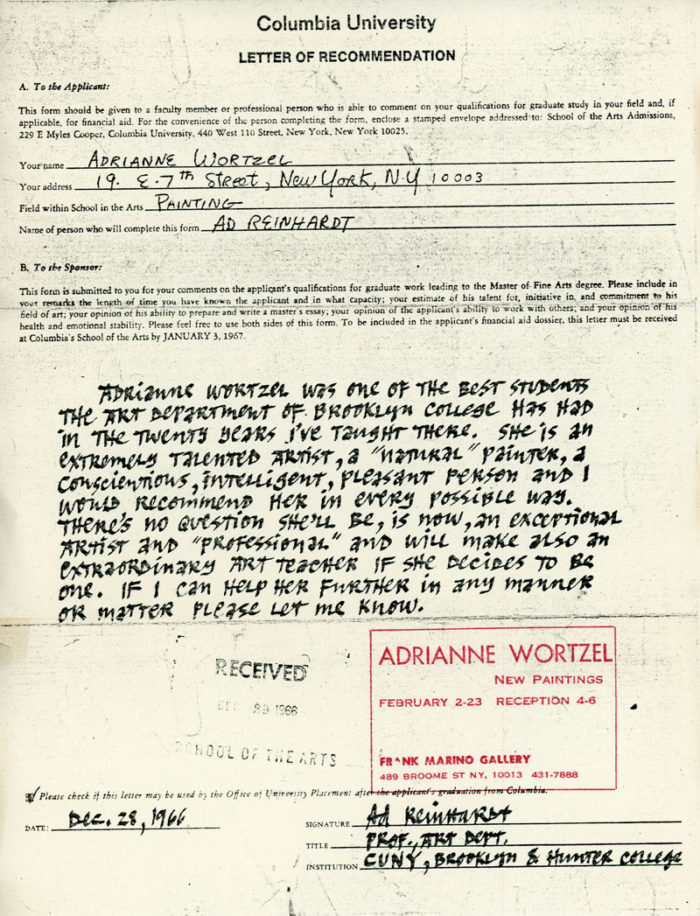 Columbia University
LETTER OF RECOMMENDATION
A. To the Applicant:
This form should be given to a faculty member or professional person who is able to comment on your qualifications for graduate study in your field and, if
applicable, for financial aid. For the convenience of the person completing the form, enclose a stamped envelope addressed to: School of the Arts Admissions,
229 E Myles Cooper, Columbia University, 440 West 110 Street, New York, New York 10025.
Your name ADRIANNE WORTZEL
Your address 19. E. 7th Street, New York, N.Y 10003
Field within School in the Arts PAINTING
Name of person who will complete this form AD REINHARDT
B. To the Sponsor:
This form is submitted to you for your comments on the applicant's qualifications for graduate work leading to the Master of Fine Arts degree. Please include in
your remarks the length of time you have known the applicant and in what capacity; your estimate of his talent for, initiative in, and commitment to his
field of art; your opinion of his ability to prepare and write a master's essay; your opinion of the applicant's ability to work with others; and your opinion of his
health and emotional stability. Please feel free to use both sides of this form. To be included in the applicant's financial aid dossier, this letter must be received
at Columbia's School of the Arts by JANUARY 3, 1967.
ADRIANNE WORTZEL WAS ONE OF THE BEST STUDENTS
THE ART DEPARTMENT OF BROOKLYN COLLEGE HAS HAD
IN THE TWENTY YEARS I'VE TAUGHT THERE. SHE IS AN
EXTREMELY TALENTED ARTIST, A "NATURAL" PAINTER, A
CONSCIENTIOUS, INTELLIGENT, PLEASANT PERSON AND I
WOULD RECOMMEND HER IN EVERY POSSIBLE WAY.
THERE'S NO QUESTION SHE'LL BE, IS NOW, AN EXCEPTIONAL
ARTIST AND "PROFESSIONAL" AND WILL MAKE ALSO AN
EXTRAORDINARY ART TEACHER IF SHE DECIDES TO BE
ONE. IF I CAN HELP HER FURTHER IN ANY MANNER
OR MATTER PLEASE LET ME KNOW.
RECEIVED
DEC 29 1966
SCHOOL OF THE ARTS
ADRIANNE WORTZEL
NEW PAINTINGS
FEBRUARY 2-23 RECEPTION 4-6
FRANK MARINO GALLERY
489 BROOME ST NY, 10013 431-7888
Please check if this letter may be used by the Office of University Placement after the applicant's graduation from Columbia.
DATE: DEC. 28, 1966
SIGNATURE Ad Reinhardt
TITLE PROF., ART DEPT.
INSTITUTION CUNY, BROOKLYN & HUNTER COLLEGE